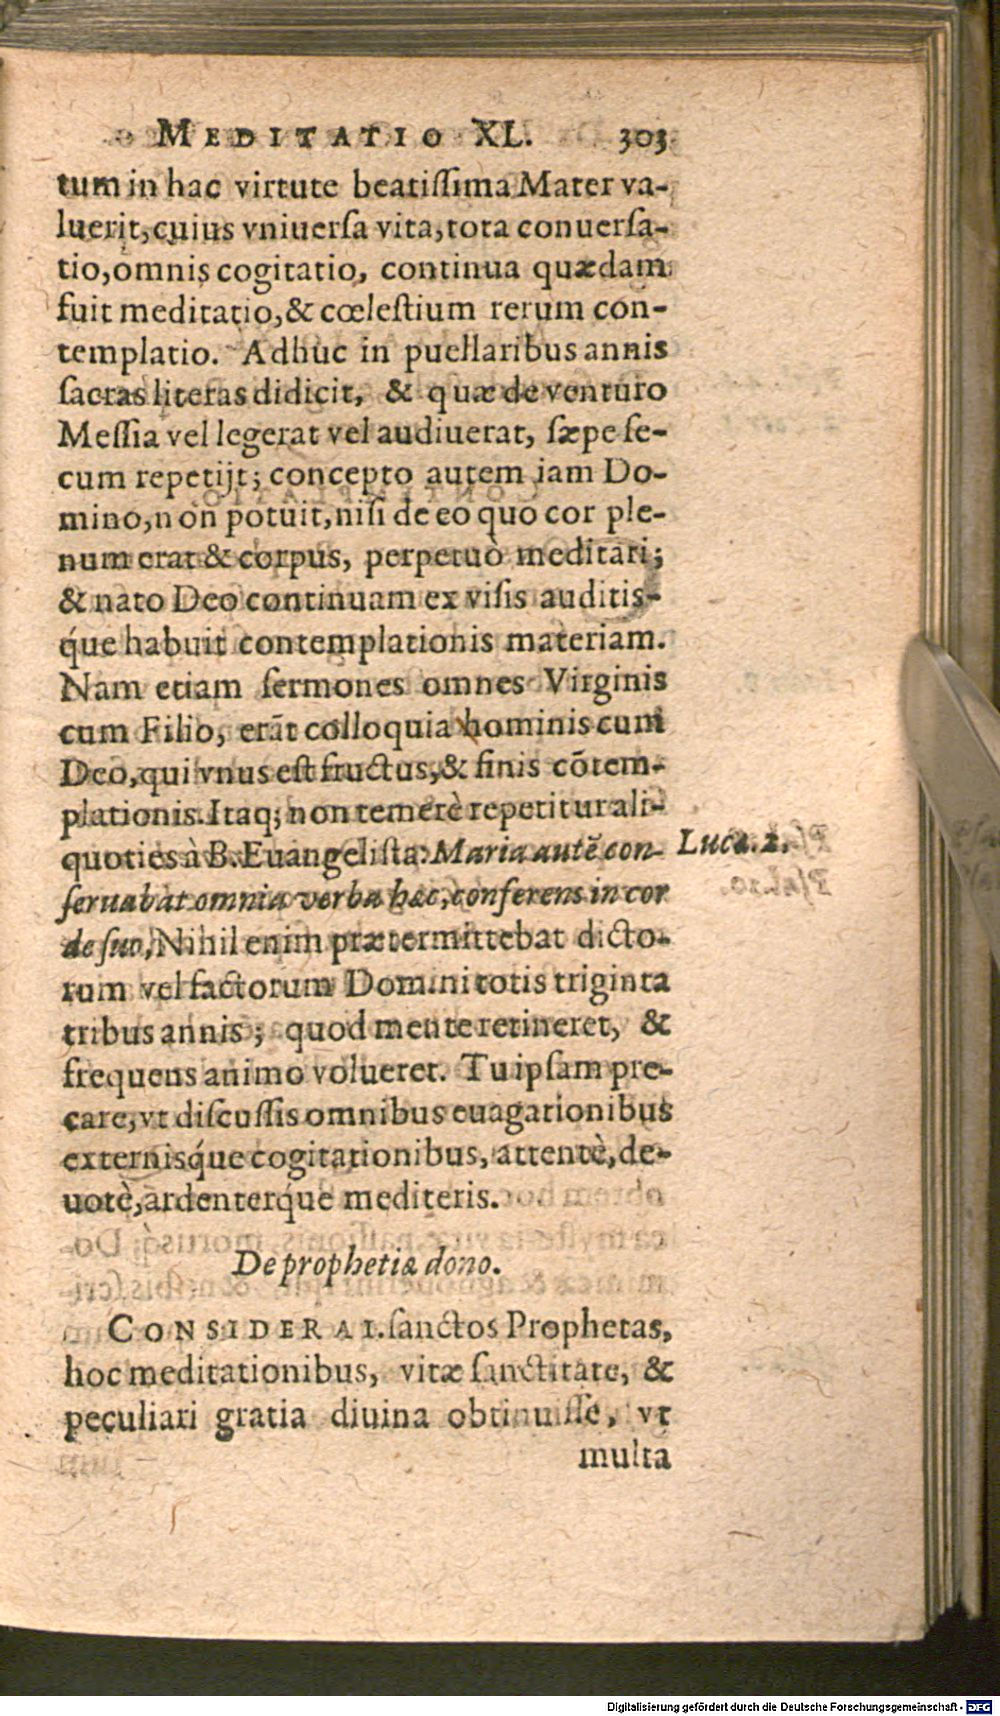 MEDITATIO XL. 303
tum in hac virtute beatiſſima Mater va-
luerit, cuius vniuerſa vita, tota conuerſa-
tio, omnis cogitatio, continua quædam
fuit meditatio, & cœleſtium rerum con-
templatio. Adhuc in puellaribus annis
ſacras literas didicit, & quæ de venturo
Meſſia vel legerat vel audiuerat, ſæpe ſe-
cum repetijt; concepto autem iam Do-
mino, non potuit, niſi de eo quo cor ple-
num erat & corpus, perpetuò meditari;
& nato Deo continuam ex viſis auditis-
q́ue habuit contemplationis materiam.
Nam etiam ſermones omnes Virginis
cum Filio, erāt colloquia hominis cum
Deo, qui vnus eſt fructus, & finis cōtem-
plationis. Itaq; non temerè repetitur ali-
quoties à B. Euangeliſta: Maria autē con-
ſeruabat omnia verba hæc, conferens in cor
de ſuo, Nihil enim prætermittebat dicto-
rum vel factorum Domini totis triginta
tribus annis; quod mente retineret, &
frequens animo volueret. Tu ipſam pre-
care, vt diſcuſſis omnibus euagationibus
externisq́ue cogitationibus, attentè, de-
uotè, ardenterq́ue mediteris.
Luca. 2.
De prophetiæ dono.
CONSIDERA I. ſanctos Prophetas,
hoc meditationibus, vitæ ſanctitate, &
peculiari gratia diuina obtinuiſſe, vt
multa
Digitalisierung gefördert durch die Deutsche Forschungsgemeinschaft - DFG